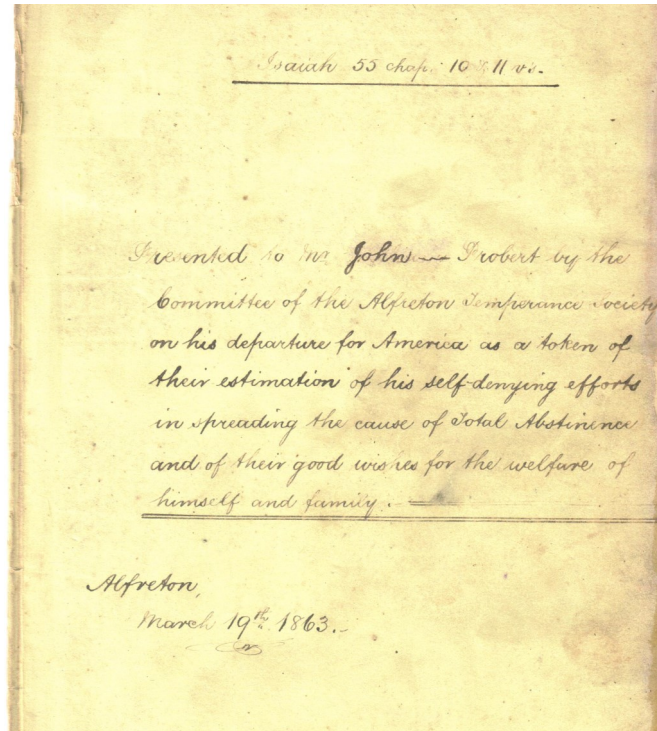 Isaiah 55 chap: 10 & 11 vs.
Presented to Mr John Probert by the
Committee of the Alfreton Temperance Society
on his departure for America as a token of
their estimation of his self-denying efforts
in spreading the cause of Total Abstinence
and of their good wishes for the welfare of
himself and family.
Alfreton,
March 19th 1863.